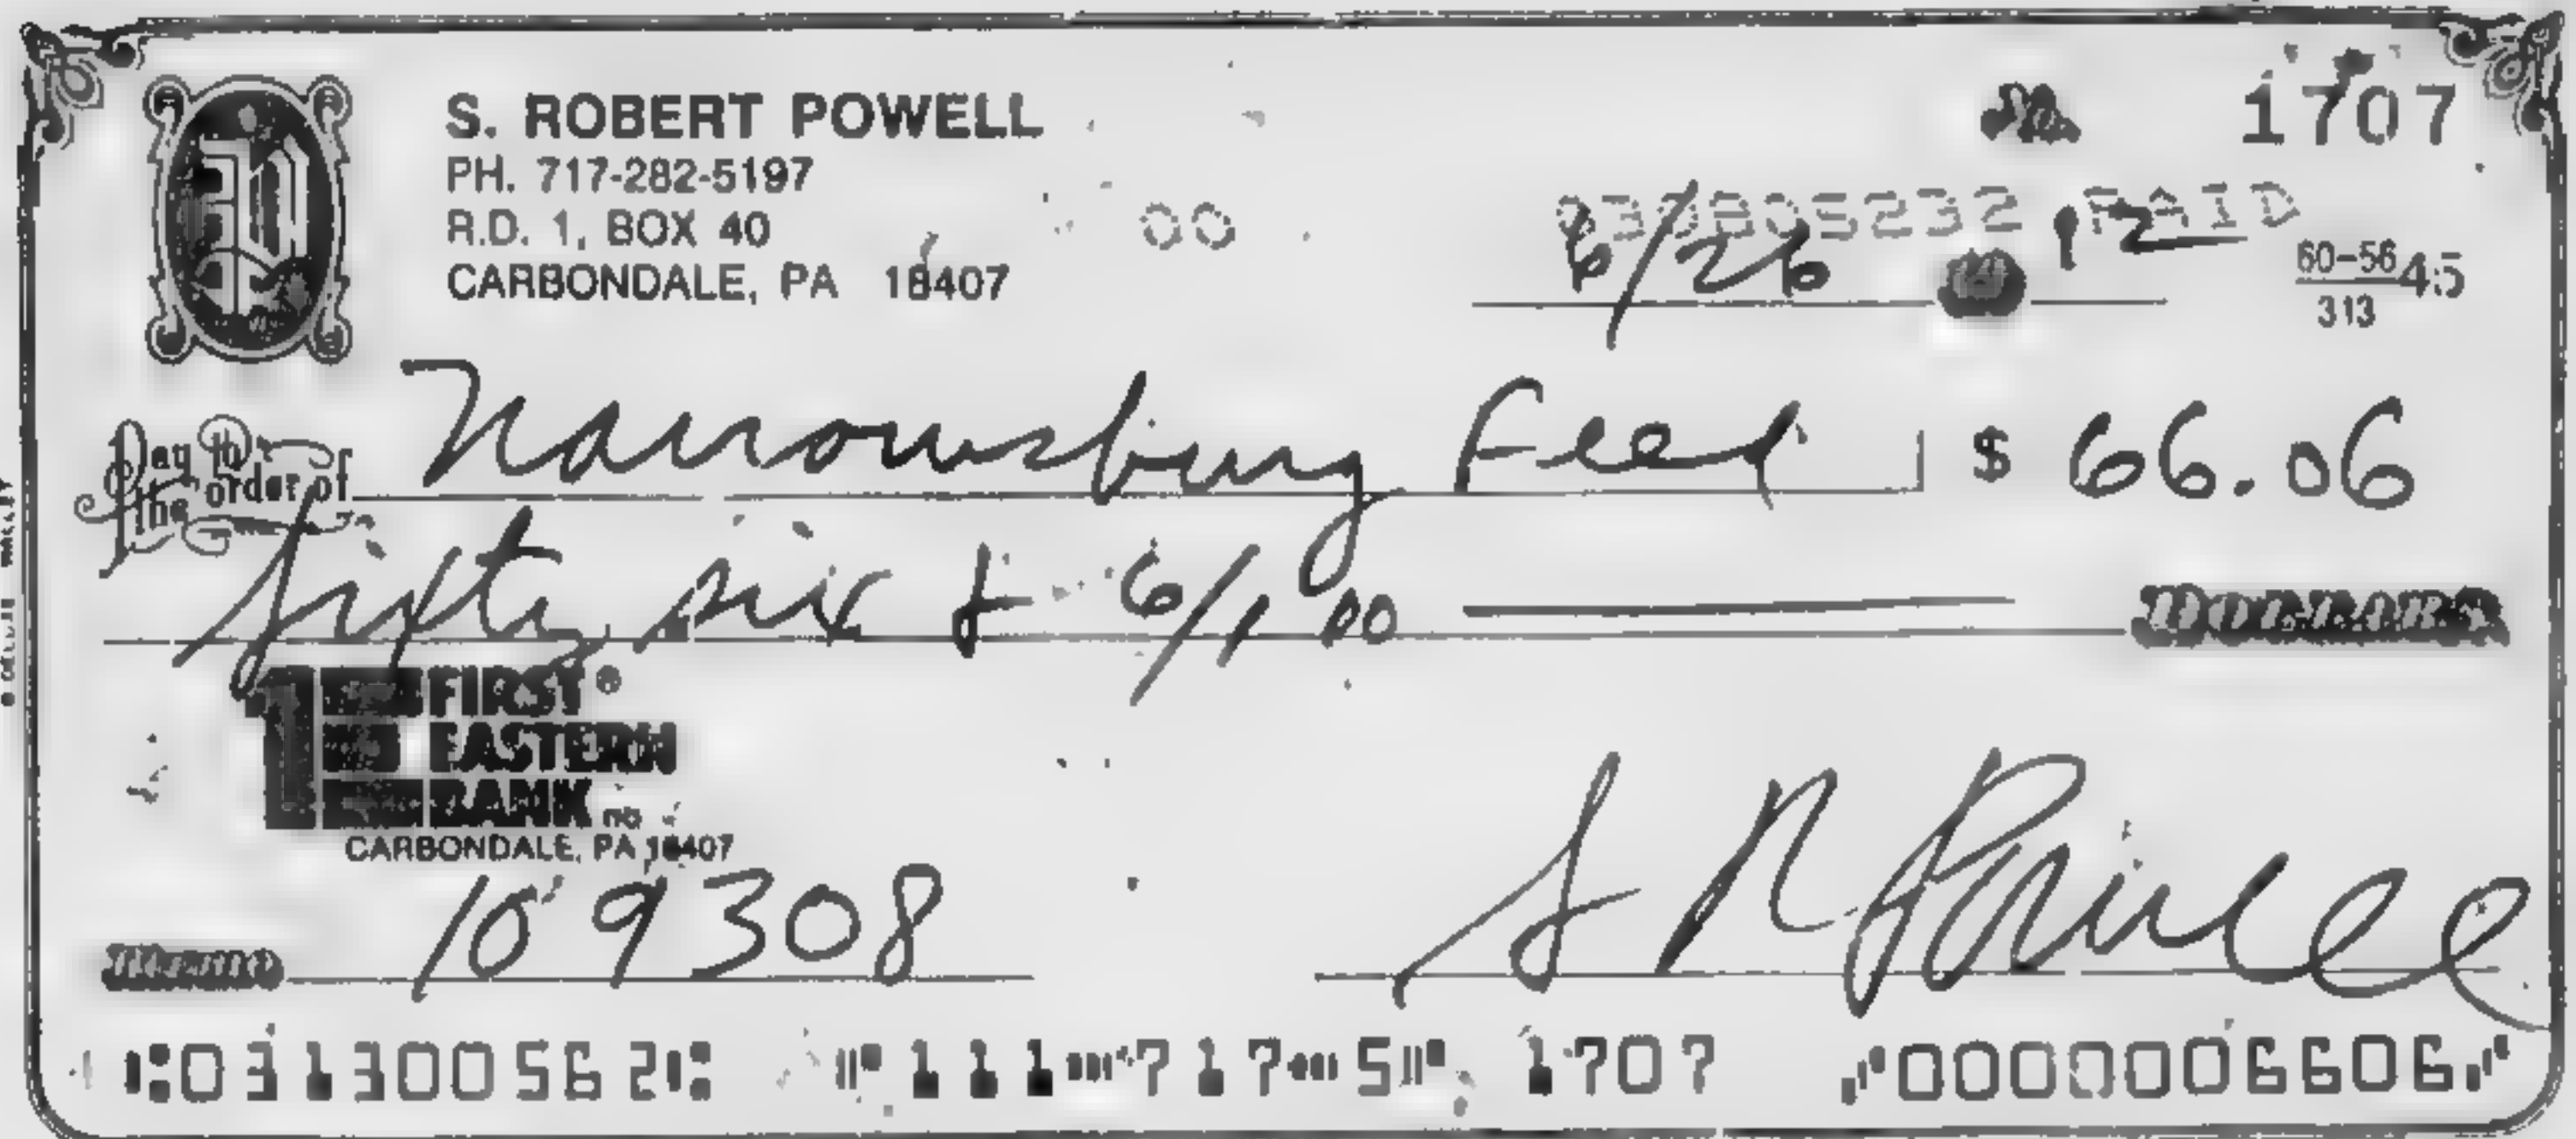 S. ROBERT POWELL
1707
PH. 717-282-5197
R.D. 1, BOX 40
CARBONDALE, PA 18407
00
030805232 PAID
6/26 12
60-56 45
313
Pay to the order of Narrowsburg Feed $ 66.06
Sixty six & 6/100 DOLLARS
FIRST®
EASTERN
BANK na
CARBONDALE, PA 18407
Memo 109308
S R Powell
⑆031300562⑆ ⑈111⑉717⑉5⑈ 1707 ⑈0000006606⑈